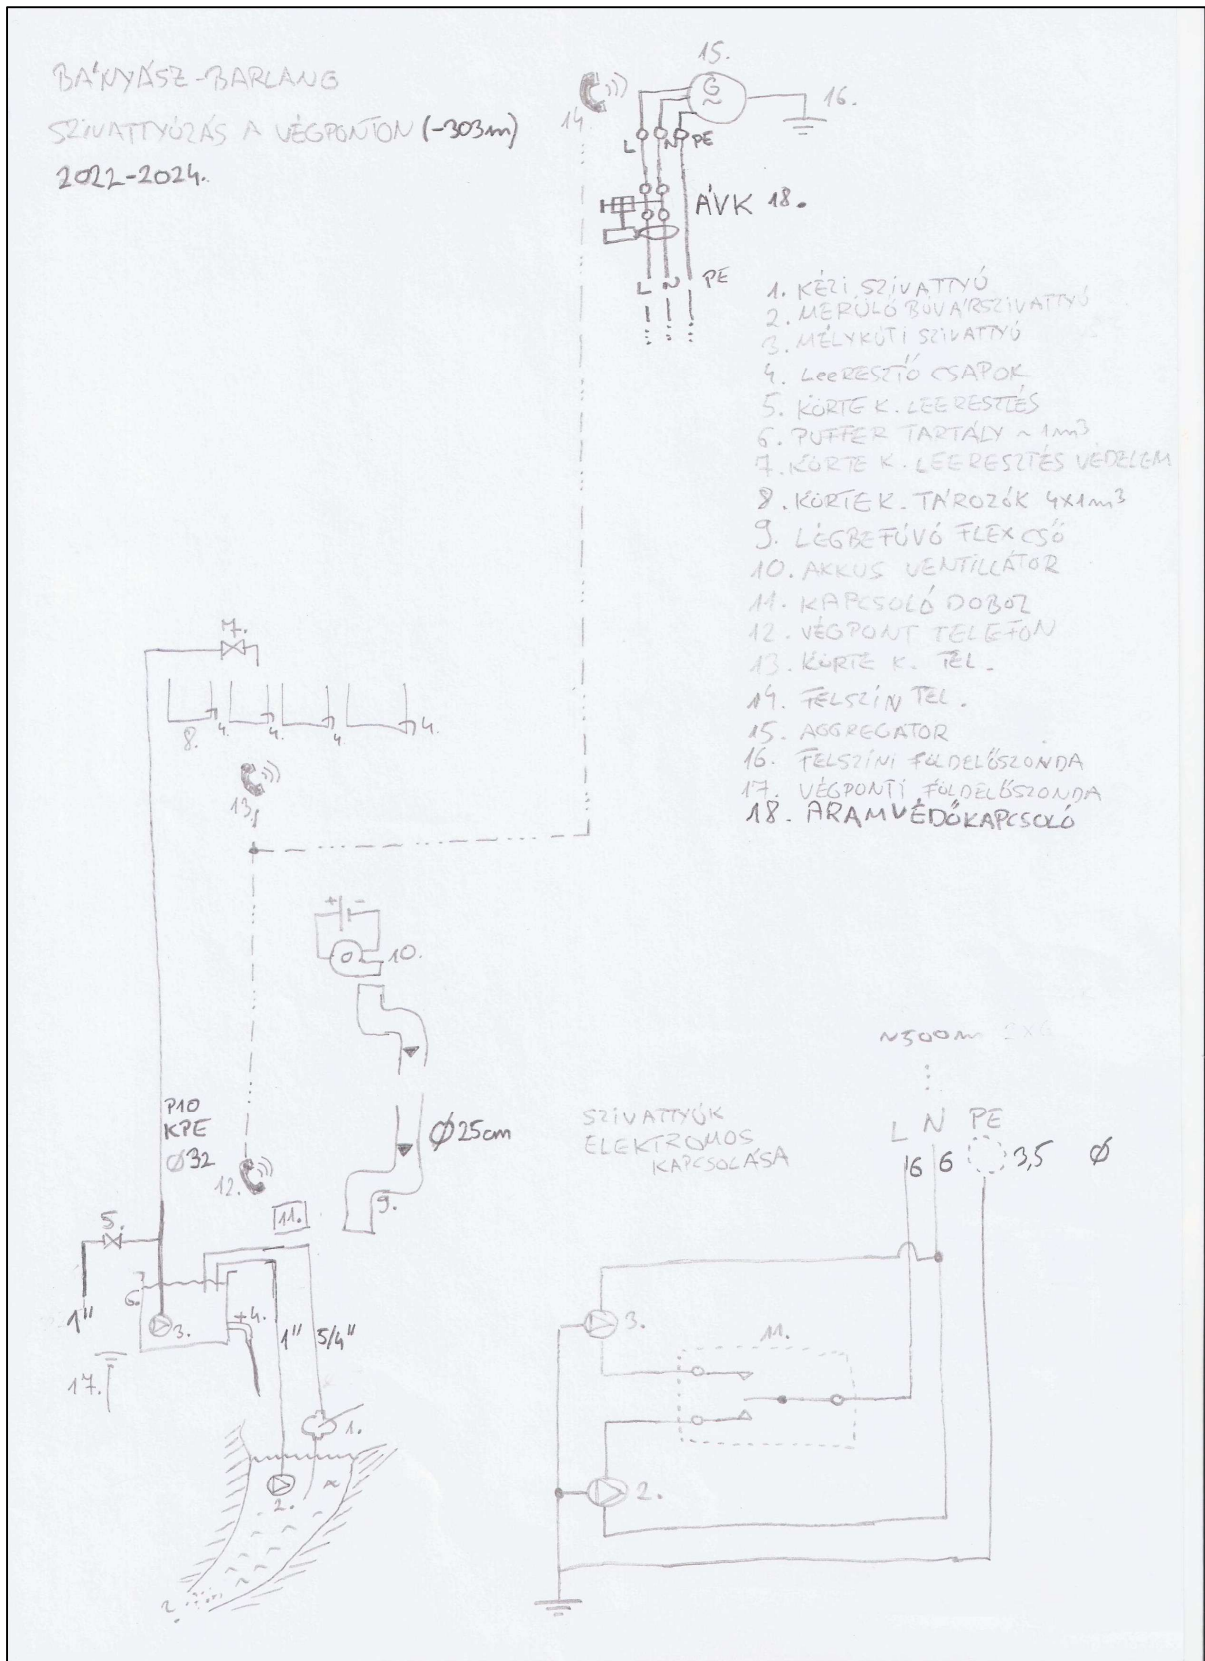 BÁNYÁSZ-BARLANG
SZIVATTYÚZÁS A VÉGPONTON (-303m)
2022-2024.
15.
G
~
16.
14.
L N PE
ÁVK 18.
L N PE
1. KÉZI SZIVATTYÚ
2. MERÜLŐ BÚVÁRSZIVATTYÚ
3. MÉLYKÚTI SZIVATTYÚ
4. LeeRESZTŐ CSAPOK
5. KÖRTE K. LEERESZTÉS
6. PUFFER TARTÁLY ~ 1m³
7. KÖRTE K. LEERESZTÉS VÉDELEM
8. KÖRTE K. TÁROZÓK 4x1m³
9. LÉGBEFÚVÓ FLEX CSŐ
10. AKKUS VENTILLÁTOR
11. KAPCSOLÓ DOBOZ
12. VÉGPONT TELEFON
13. KÖRTE K. TEL.
14. FELSZÍN TEL.
15. AGGREGÁTOR
16. FELSZÍNI FÖLDELŐSZONDA
17. VÉGPONTI FÖLDELŐSZONDA
18. ÁRAMVÉDŐKAPCSOLÓ
7.
8. 4. 4. 4. 4.
13.
+ -
10.
P10
KPE
Ø32
Ø25cm
12.
11.
9.
5.
6.
1"
3.
4.
1" 5/4"
17.
1.
2.
~500m
SZIVATTYÚK
ELEKTROMOS
KAPCSOLÁSA
L N PE
6 6 3,5 Ø
3.
11.
2.